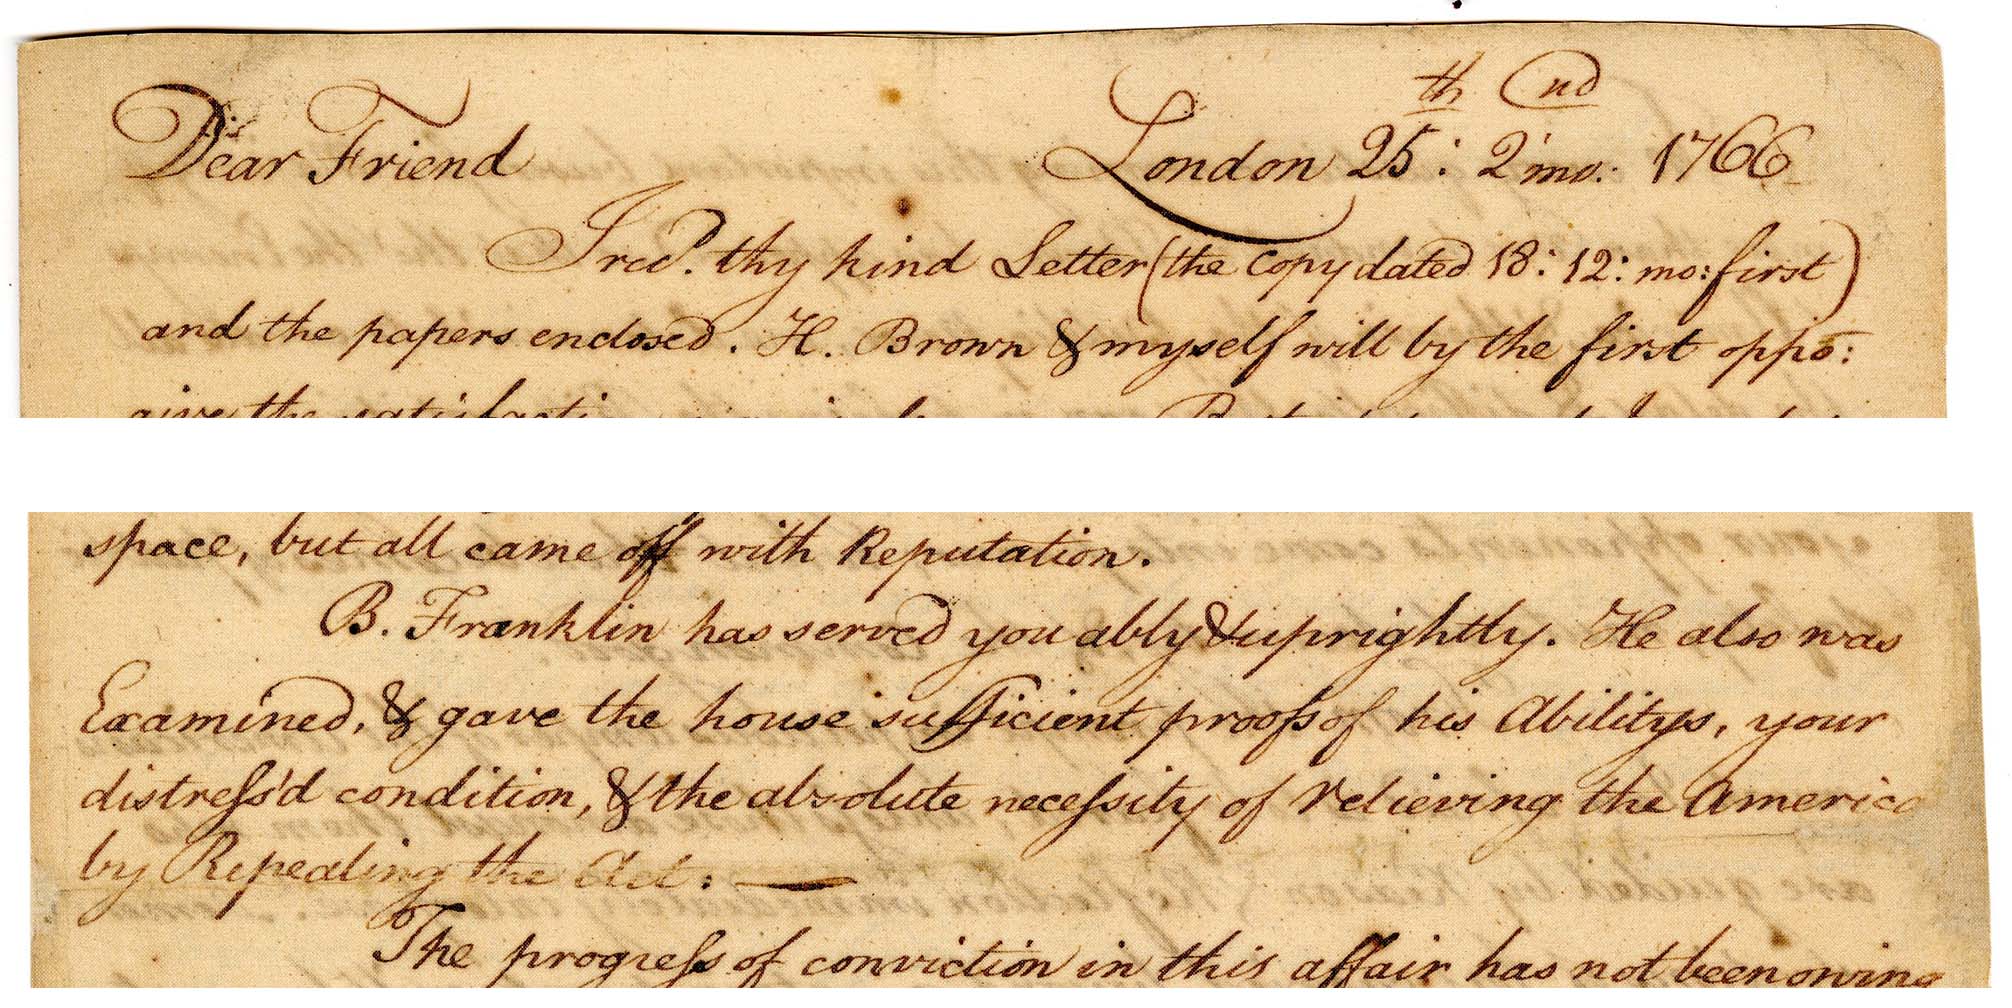 Dear Friend London 25th: 2nd mo: 1766
I recd. thy kind Letter (the Copy dated 18: 12: mo: first)
and the papers enclosed. H. Brown & myself will by the first oppo:
give the
space, but all came off with Reputation.
B. Franklin has served you ably & uprightly. He also was
Examined, & gave the house sufficient proofs of his Abilitys, your
distress'd condition, & the absolute necessity of relieving the America
by Repealing the Act: —
The progress of conviction in this affair has not been owing